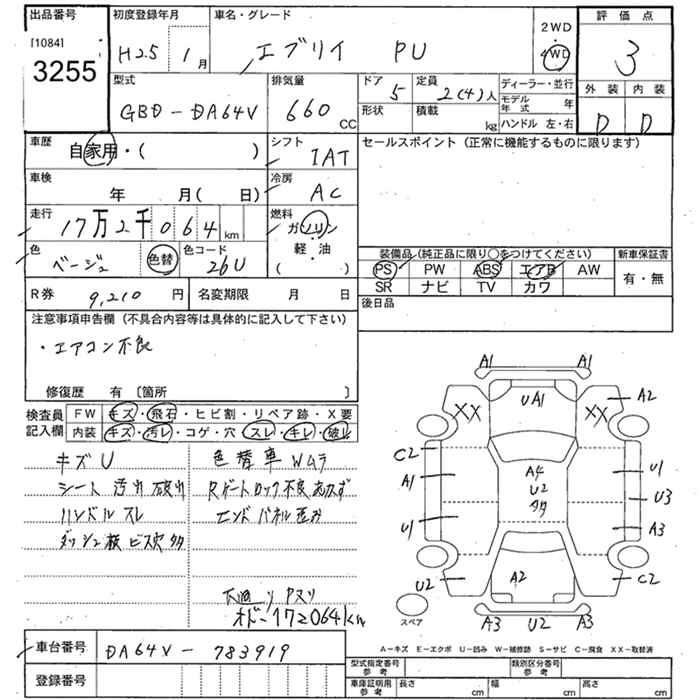 出品番号
[1084]
3255
初度登録年月
H25 1月
車名・グレード
エブリイ PU
2WD
4WD
評価点
3
外装 内装
D D
型式
GBD-DA64V
排気量
660 CC
ドア 5
形状
定員 2(4)人
積載 kg
ディーラー・並行
モデル年式 年
ハンドル 左・右
車歴
自家用・( )
シフト
IAT
車検
年 月( 日)
冷房
AC
走行
17万2千064km
燃料
ガソリン
軽・油
( )
色
ベージュ
色替
色コード
26U
R券 9,210 円
名変期限 月 日
セールスポイント(正常に機能するものに限ります)
装備品(純正品に限り○をつけてください)
PS PW ABS エアB AW
SR ナビ TV カワ
新車保証書
有・無
後日品
注意事項申告欄(不具合内容等は具体的に記入して下さい)
・エアコン不良
修復歴 有〔箇所 〕
検査員記入欄
FW キズ・飛石・ヒビ割・リペア跡・X要
内装 キズ・汚レ・コゲ・穴 スレ・キレ・破レ
キズU
シート 汚れ 破れ
ハンドル スレ
ダッシュ板 ビス穴 多
色替車 Wムラ
Rゲートロック不良あかず
エンドパネル歪み
下廻り Pヌリ
オドー172064km
A1 A1
A2
UA1
XX XX
C2
A1
U1
U2
A4
U2
多多
U1
U3
A3
C2
A2
スペア
A3 U2 A3
A-キズ E-エクボ U-凹み W-補修跡 S-サビ C-腐食 XX-取替済
車台番号 DA64V-783919
登録番号
型式指定番号 参考
類別区分番号 参考
車庫証明用 参考
長さ cm 幅 cm 高さ cm